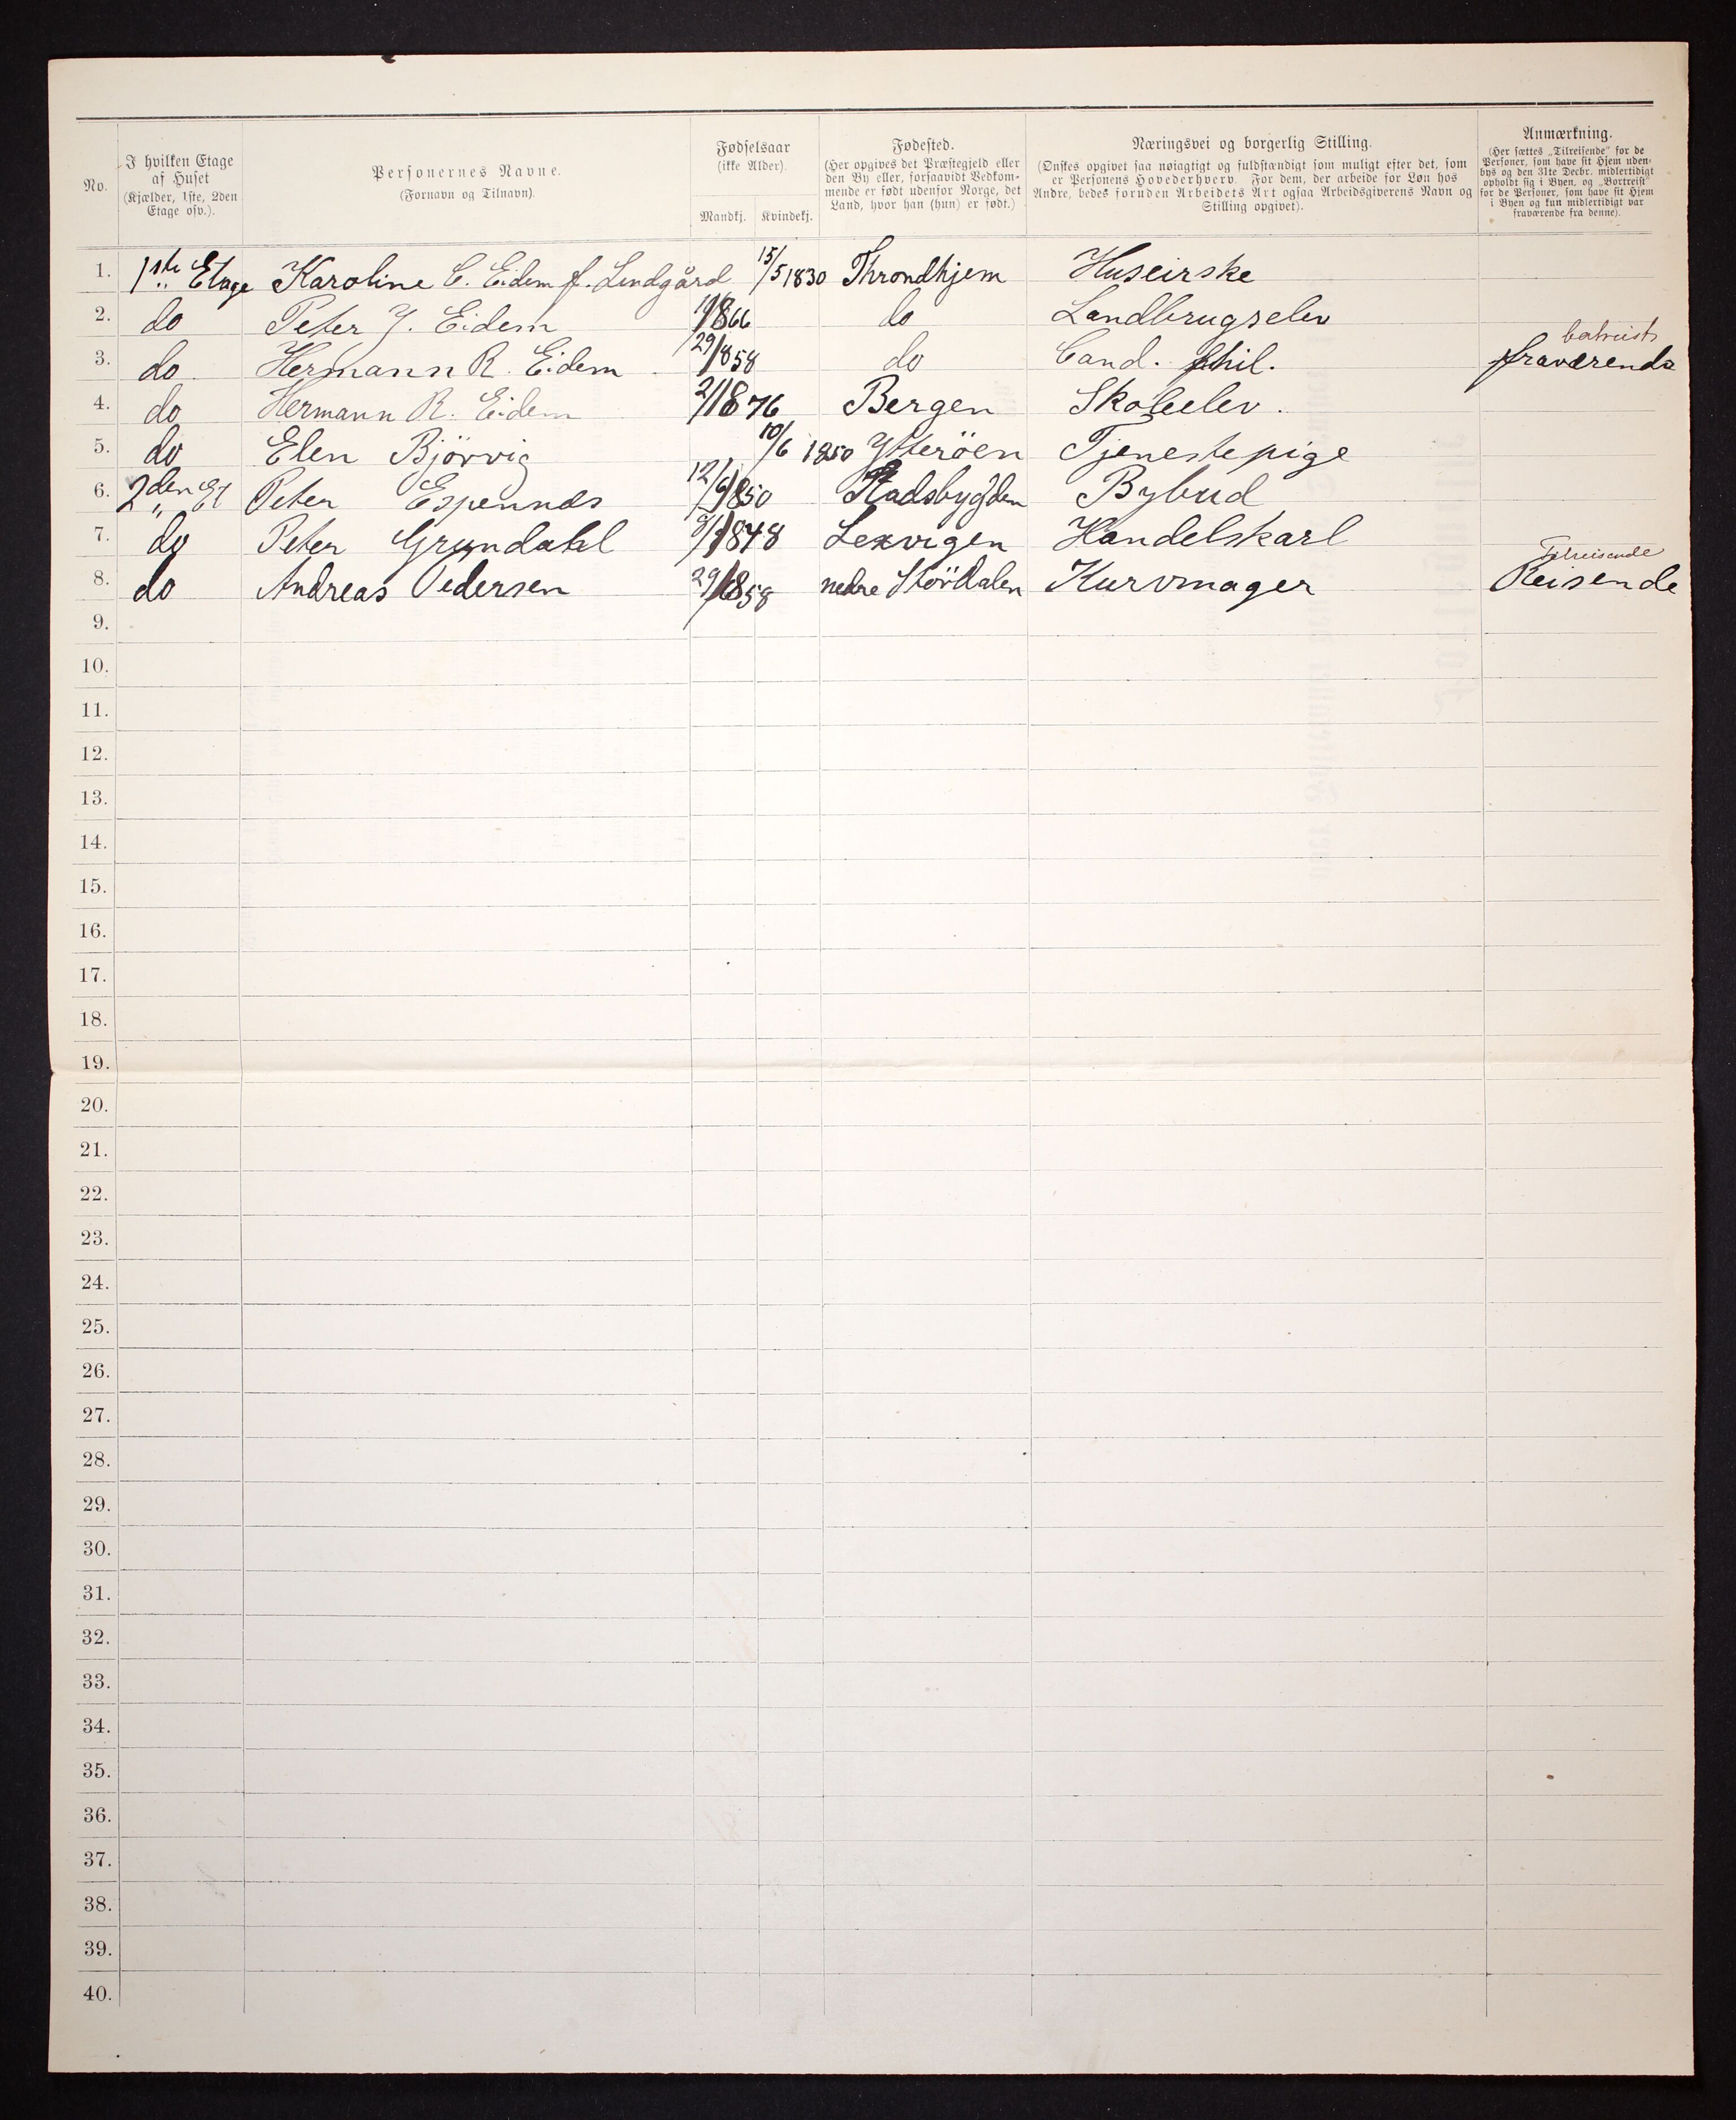 No.
I hvilken Etage
af Huset
(Kjælder, 1ste, 2den
Etage osv.).
Personernes Navne.
(Fornavn og Tilnavn).
Fødselsaar
(ikke Alder).
Mandkj. Kvindekj.
Fødested.
(Her opgives det Præstegjeld eller
den By eller, forsaavidt Vedkom-
mende er født udenfor Norge, det
Land, hvor han (hun) er født.)
Næringsvei og borgerlig Stilling.
(Ønskes opgivet saa nøiagtigt og fuldstændigt som muligt efter det, som
er Personens Hovederhverv. For dem, der arbeide for Løn hos
Andre, bedes foruden Arbeidets Art ogsaa Arbeidsgiverens Navn og
Stilling opgivet).
Anmærkning.
(Her sættes „Tilreisende" for de
Personer, som have sit Hjem uden-
bys og den 31te Decbr. midlertidigt
opholdt sig i Byen, og „Bortreist"
for de Personer, som have sit Hjem
i Byen og kun midlertidigt var
fraværende fra denne).
1. 1ste Etage Karoline C. Eidem f. Lindgård 15/5 1830 Throndhjem Huseirske
2. do Peter J. Eidem 1866 do Landbrugselev
bortreist
3. do Hermann R. Eidem 29/ 1858 do Cand. phil. fraværende
4. do Hermann R. Eidem 2/1 1876 Bergen Skoleelev.
5. do Elen Bjørvig 10/6 1850 Ytteröen Tjenestepige
6. 2den Et Peter Espennes 12/6 1850 Stadsbygden Bybud
7. do Peter Grøndahl 1848 Lexvigen Handelskarl
Tilreisende
8. do Andreas Pedersen 29/ 1858 nedre Stördalen Kurvmager Reisende
9.
10.
11.
12.
13.
14.
15.
16.
17.
18.
19.
20.
21.
22.
23.
24.
25.
26.
27.
28.
29.
30.
31.
32.
33.
34.
35.
36.
37.
38.
39.
40.